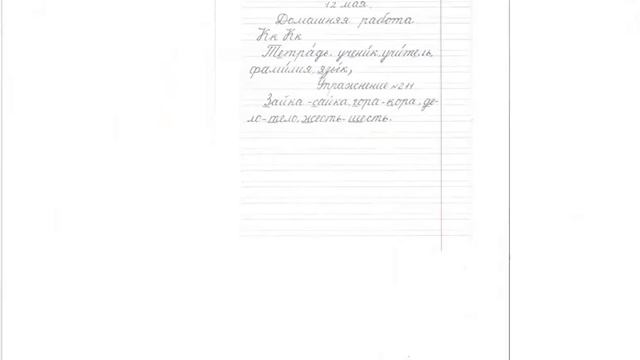 12 мая.
Домашняя работа
Кк Кк
Тетра́дь, учени́к, учи́тель,
фами́лия, язы́к,
Упражнение №211
Зайка-сайка, гора-кора, де-
ло-тело, жесть-шесть.